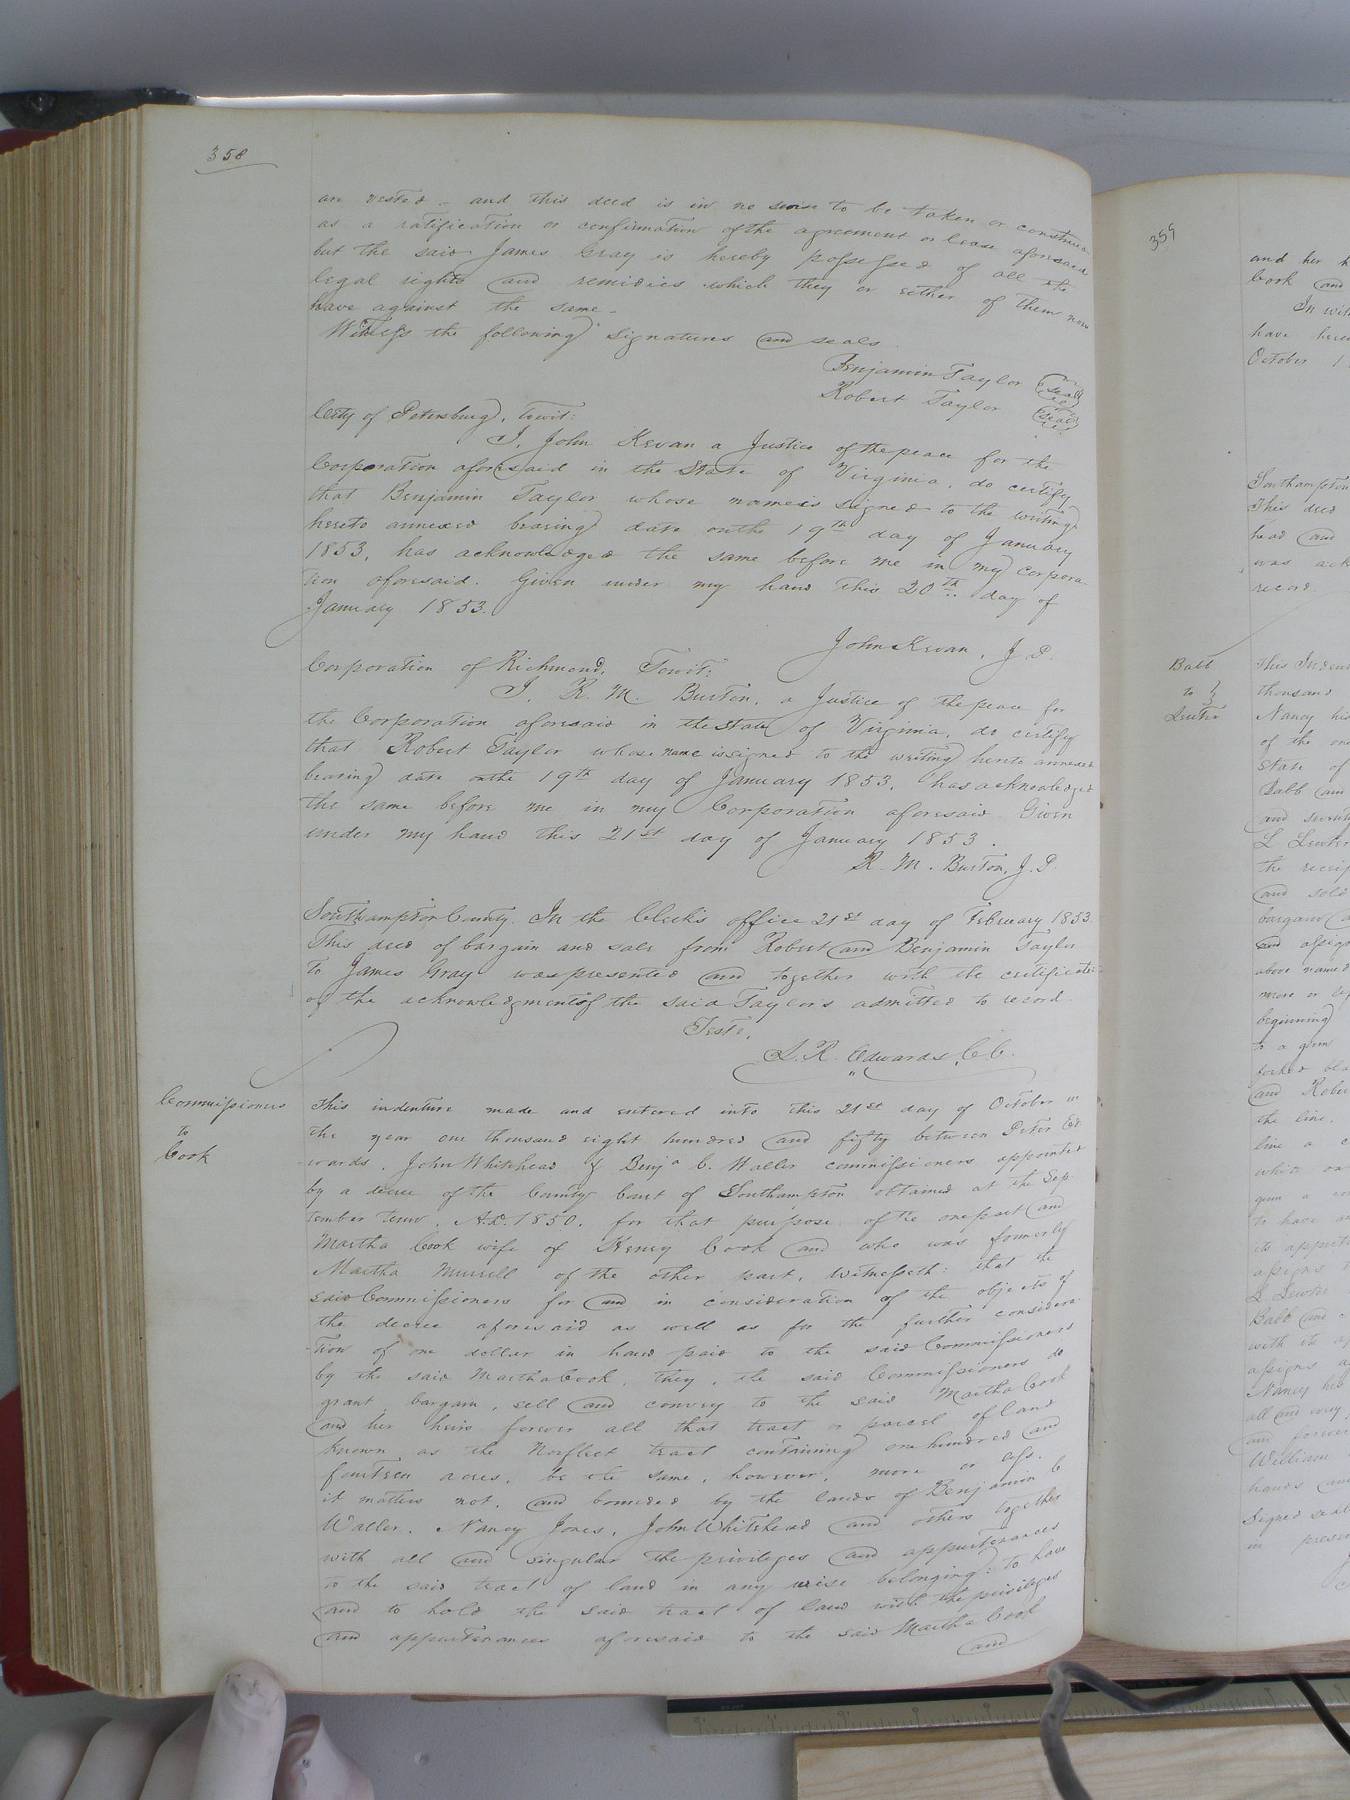 358
are vested - and this deed is in no sense to be taken or construed
as a ratification or confirmation of the agreement or lease aforesaid
but the said James Gray is hereby possessed of all the
legal rights and remidies which they or either of them now
have against the same -
Witness the following signatures and seals.
Benjamin Taylor seal
Robert Taylor seal
City of Petersburg, towit:
I, John Kevan a Justice of the peace for the
Corporation aforesaid in the State of Virginia, do certify
that Benjamin Taylor whose name is signed to the writing
hereto annexed bearing date on the 19th day of January
1853, has acknowledged the same before me in my corpora-
tion aforesaid. Given under my hand this 20th day of
January 1853.
John Kevan, J.P.
Corporation of Richmond, Towit:
I, R. M. Burton, a Justice of the peace for
the Corporation aforesaid in the State of Virginia, do certify
that Robert Taylor whose name is signed to the writing hereto annexed
bearing date on the 19th day of January 1853, has acknowledged
the same before me in my Corporation aforesaid. Given
under my hand this 21st day of January 1853.
R. M. Burton, J.P.
Southampton County. In the Clerk's office 21st day of February 1853
This deed of bargain and sale from Robert and Benjamin Taylor
to James Gray was presented and together with the certificates
of the acknowledgments of the said Taylors admitted to record.
Teste,
L. R. Edwards, C.C.
Commissioners
to
Cook
This indenture made and entered into this 21st day of October in
the year one thousand eight hundred and fifty between Peter Ed-
wards, John Whitehead & Benja C. Waller commissioners appointed
by a decree of the County Court of Southampton obtained at the Sep-
tember term, A.D. 1850, for that purpose of the one part and
Martha Cook wife of Henry Cook and who was formerly
Martha Murrell of the other part, Witnesseth: that the
said Commissioners for and in consideration of the objects of
the decree aforesaid as well as for the further considera-
tion of one dollar in hand paid to the said Commissioners
by the said Martha Cook, they, the said Commissioners do
grant, bargain, sell and convey to the said Martha Cook
and her heirs forever all that tract or parcel of land
known as the Norfleet tract containing one hundred and
fourteen acres, be the same, however, more or less,
it matters not, and bounded by the lands of Benjamin C
Waller, Nancy Jones, John Whitehead and others together
with all and singular the privileges and appurtenances
to the said tract of land in any wise belonging: to have
and to hold the said tract of land with the privileges
and appurtenances aforesaid to the said Martha Cook
and
359
and her
Cook and
In wit
have here
October 1
Southampton
This deed
head and
was ack
record.
Babb
to
Lewter
This Inden
thousand
Nancy his
of the one
State of
Babb and
and seventy
L Lewter
the receip
and sold
bargain
and assign
above named
more or le
beginning
to a gum
forked
and Rober
the line,
line a
white oa
gum a
to have an
its appurt
assigns
L Lewter
Babb and
with its ap
assigns
Nancy his
all and every
and forever
William
hands and
Signed seal
in presen